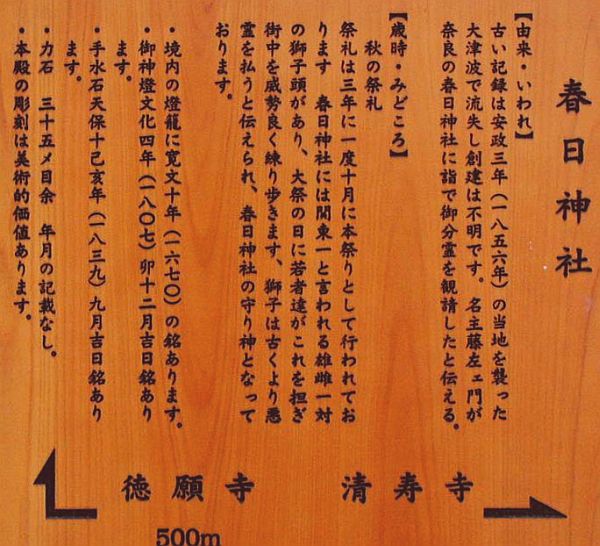 春日神社
【由来・いわれ】
古い記録は安政三年（一八五六年）の当地を襲った
大津波で流失し創建は不明です。名主藤左ェ門が
奈良の春日神社に詣で御分霊を観請したと伝える。
【歳時・みどころ】
秋の祭礼
祭礼は三年に一度十月に本祭りとして行われてお
ります　春日神社には関東一と言われる雄雌一対
の獅子頭があり、大祭の日に若者達がこれを担ぎ
街中を威勢良く練り歩きます。獅子は古くより悪
霊を払うと伝えられ、春日神社の守り神となって
おります。
・境内の燈籠に寛文十年（一六七〇）の銘あります。
・御神燈文化四年（一八〇七）卯十二月吉日銘あり
ます。
・手水石天保十己亥年（一八三九）九月吉日銘あり
ます。
・力石　三十五メ目余　年月の記載なし。
・本殿の彫刻は美術的価値あります。
清寿寺
徳願寺
500m